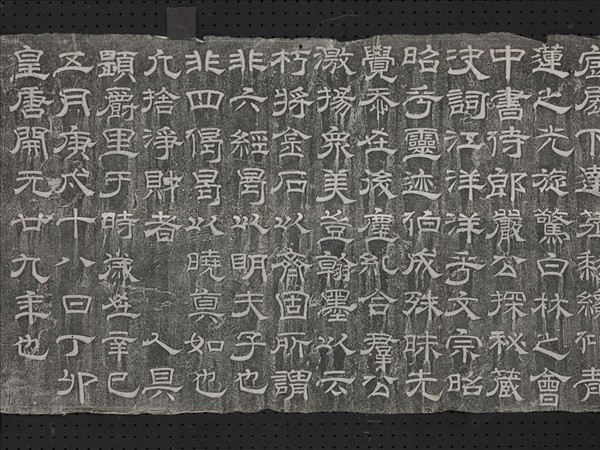 下達
蓮之光旋驚白林之會
中書侍郎嚴公探秘藏
決詞江洋洋乎文宗昭
昭乎靈迹伯成殊昧先
覺忝在後塵糺合群公
激揚衆美豈翰墨以云
朽將金石以齊固所謂
非六經曷以明夫子也
非四偈曷以曉真如也
凢捨淨財者具
顯爵里于時歲在辛巳
五月庚戌十八日丁卯
皇唐開元廿九年也